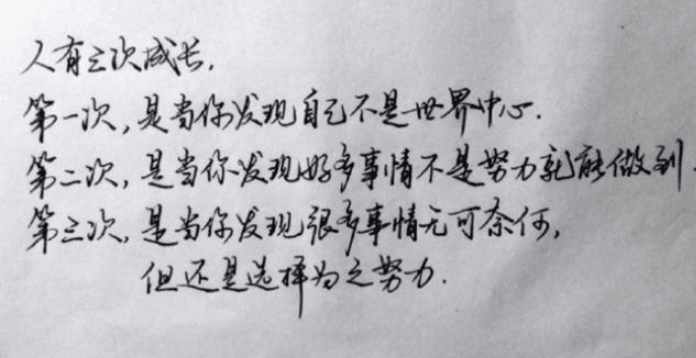 人有三次成长.
第一次,是当你发现自己不是世界中心.
第二次,是当你发现好多事情不是努力就能做到.
第三次,是当你发现很多事情无可奈何,
但还是选择为之努力.